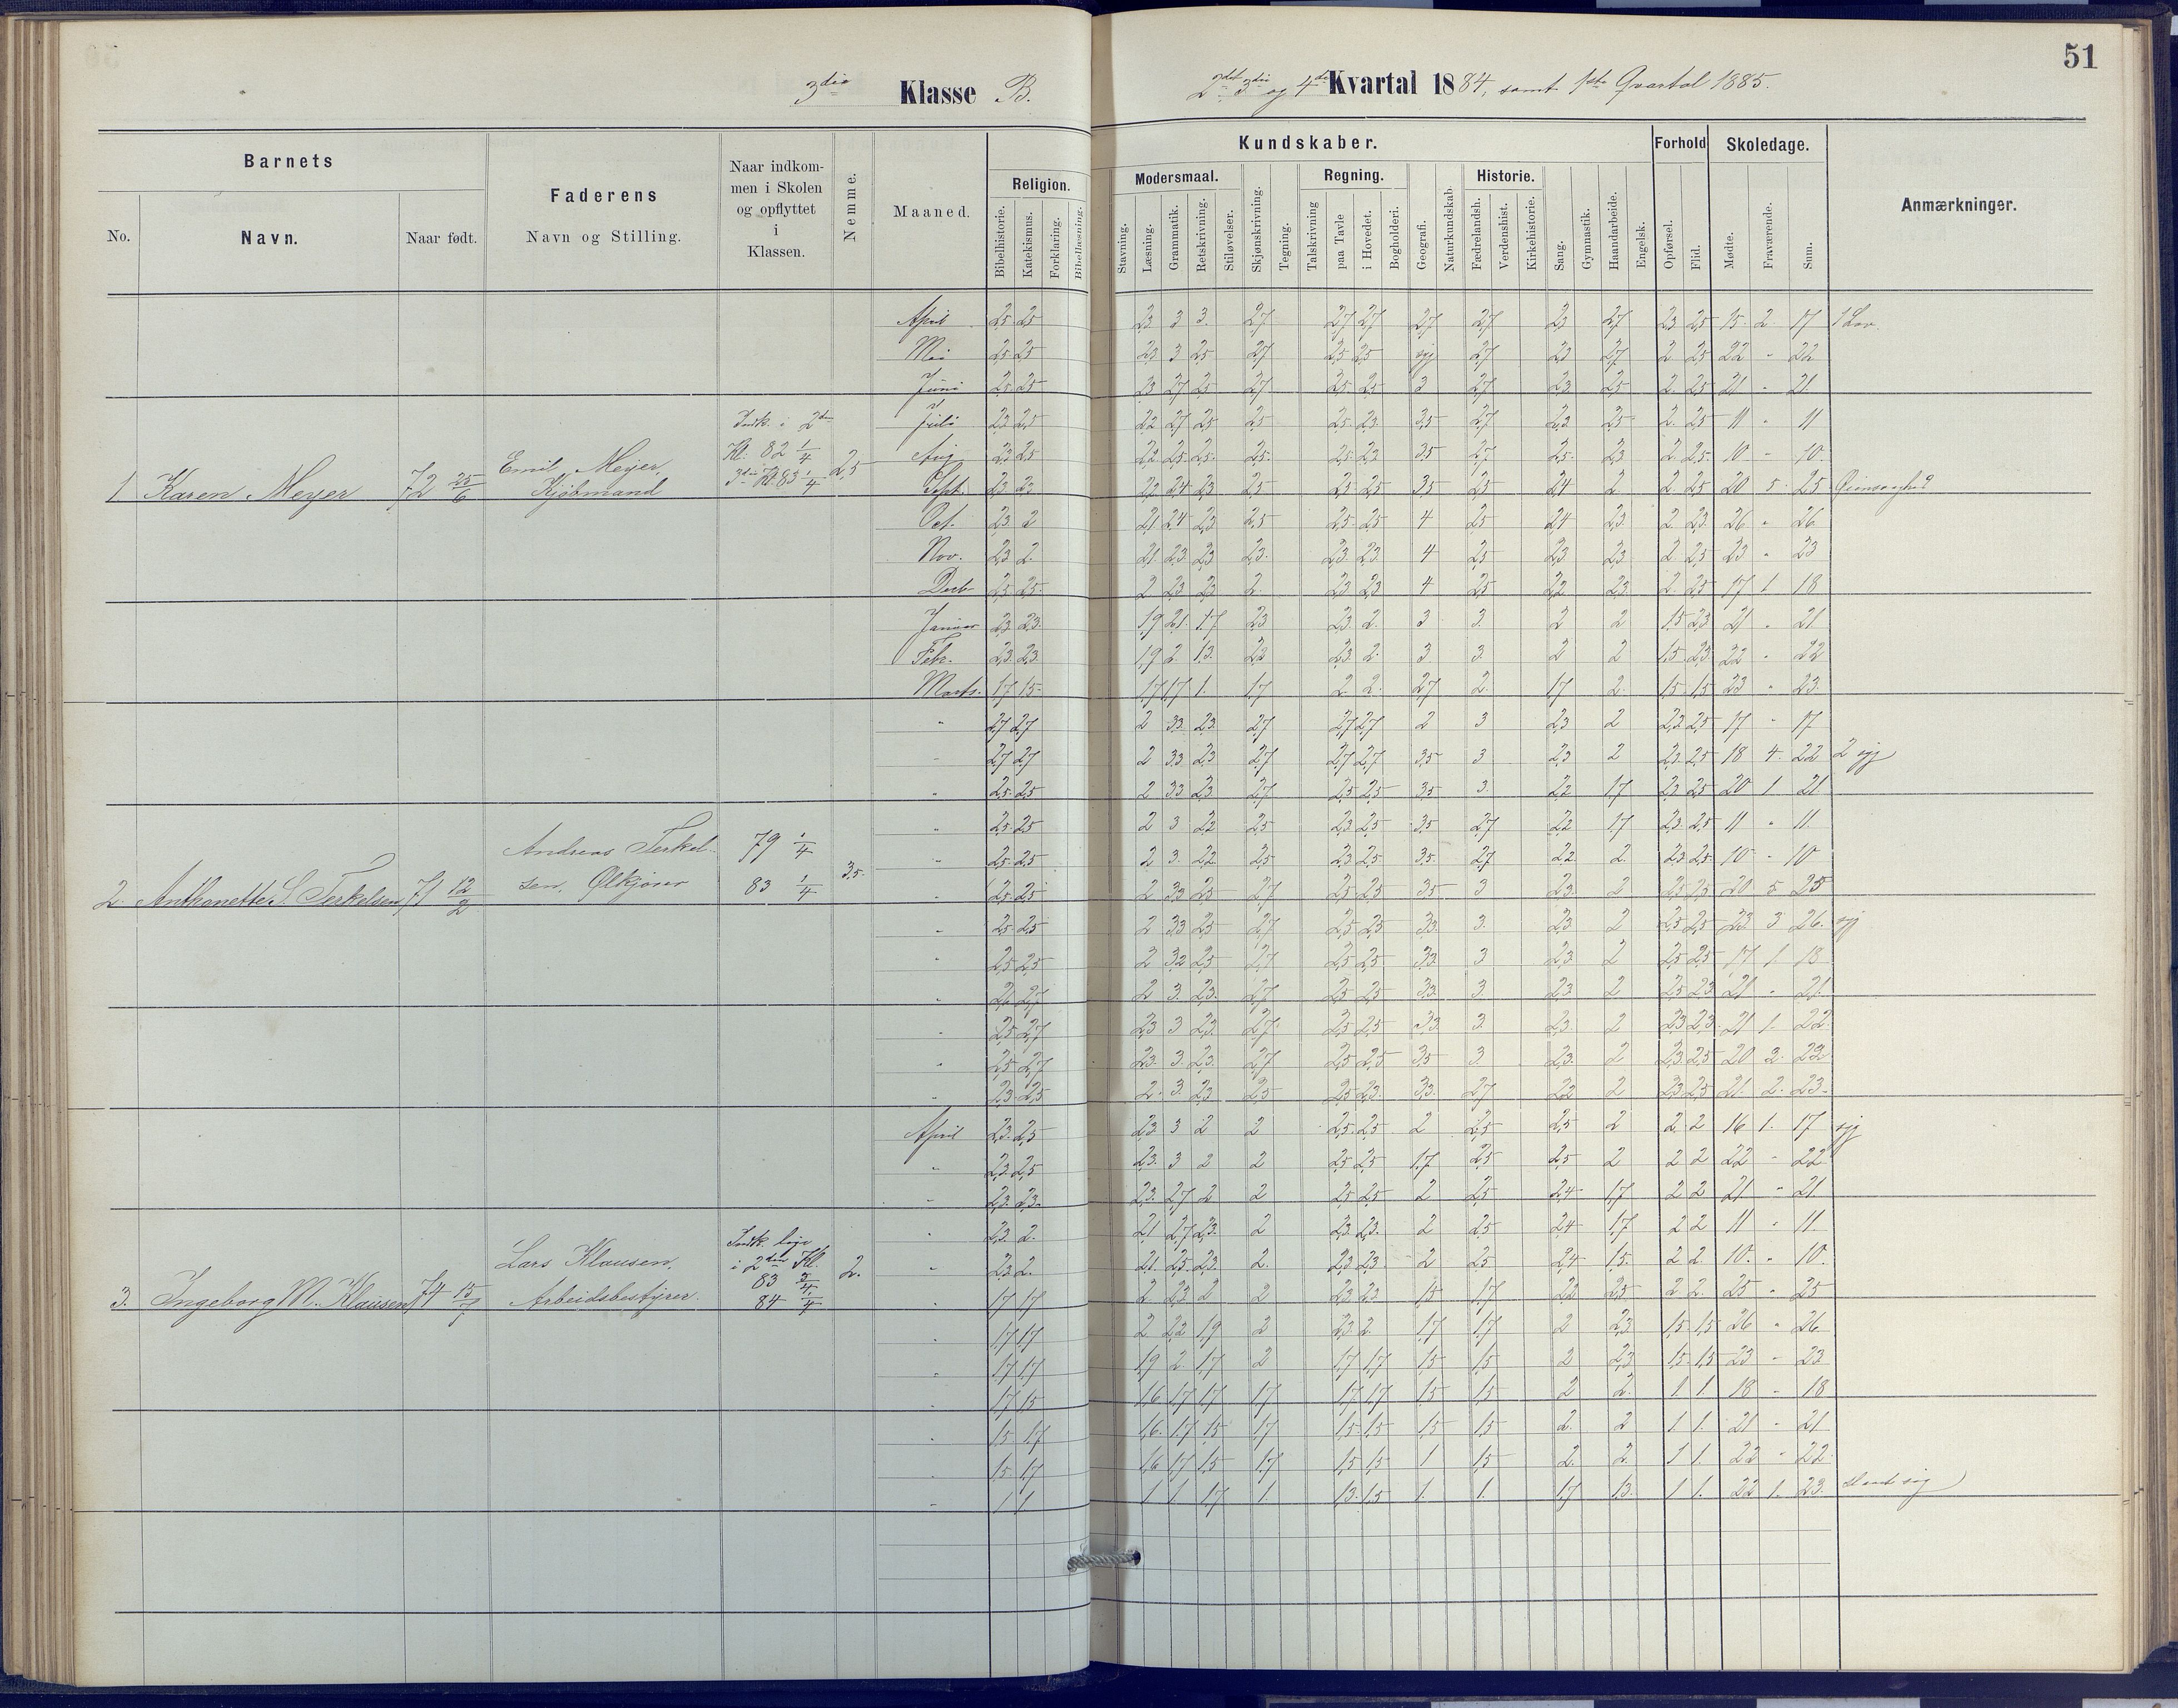 51
3die Klasse B.
2det 3die og 4de Kvartal 1884, samt 1ste Qvartal 1885.
Barnets
No.
Navn.
Naar født.
Faderens
Navn og Stilling.
Naar indkom-
men i Skolen
og opflyttet
i
Klassen.
Nemme.
Maaned.
Religion.
Bibelhistorie.
Katekismus.
Forklaring.
Bibellæsning.
Kundskaber.
Modersmaal.
Stavning.
Læsning.
Grammatik.
Retskrivning.
Stiløvelser.
Skjønskrivning.
Tegning.
Regning.
Talskrivning
paa Tavle
i Hovedet.
Bogholderi.
Geografi.
Naturkundskab.
Historie.
Fædrelandsh.
Verdenshist.
Kirkehistorie.
Sang.
Gymnastik.
Haandarbeide.
Engelsk.
Forhold
Opførsel.
Flid.
Skoledage.
Mødte.
Fraværende.
Sum.
Anmærkninger.
April 2,5 2,5 2,3 3 3. 2,7 2,7 2,7 2,7 2,7 2,3 2,7 2,3 2,5 15. 2 17 1 Lov.
Mai 2,5 2,5 2,3 3 2,5 2,7 2,5 2,5 syg 2,7 2,3 2,7 2 2,5 22 " 22
Juni 2,5 2,5 2,3 2,7 2,5 2,7 2,5 2,5 3 2,7 2,3 2,5 2. 2,5 21 " 21
Juli 2,3 2,5 2,2 2,7 2,5 2,5 2,5 2,3 3,5 2,7 2,3 2,5 2. 2,5 11 " 11
Aug 2,3 2,5 2,2 2,5 2,5 2,5 2,5 2,3 3,5 2,7 2,5 2,3 2 2,5 10 " 10.
1 Karen Meyer 72 25/6
Emil Meyer,
Kjøbmand
Indk. i 2den
Kl. 82 1/4
3die Kl. 83 1/4
2,5
Sept. 2,3 2,3 2,2 2,4 2,3 2,5 2,5 2,5 3,5 2,5 2,4 2 2. 2,5 20 5 25
Oct. 2,3 2 2,1 2,4 2,3 2,5 2,5 2,5 4 2,5 2,4 2,3 2 2,3 26 " 26
Nov. 2,3 2. 2,1 2,3 2,3 2,3 2,3 2,3 4 2,5 2,3 2,3 2 2,5 23 " 23
Decb 2,5 2,5 2 2,3 2,3 2. 2,3 2,3 4 2,5 2,2 2,3 2. 2,5 17 1 18
Januar 2,3 2,3 1,9 2,1 1,7 2,3 2,3 2. 3 3. 2 2 1,5 2,3 21 " 21
Febr. 2,3 2,3 1,9 2. 1,3 2,3 2,3 2. 3 3. 2 2 1,5 2,3 22 " 22
Marts. 1,7 1,5 1,7 1,7 1. 1,7 2 2. 2,7 2. 1,7 2. 1,5 1,5 23 " 23.
" 2,7 2,7 2 3,3 2,3 2,7 2,7 2,7 2 3 2,3 2 2,3 2,5 17 " 17
" 2,7 2,7 2 3,3 2,3 2,7 2,7 2,7 3,5 3 2,3 2 2,3 2,5 18 4 22 2 syg
" 2,5 2,5 2 3,3 2,3 2,7 2,5 2,5 3,5 3. 2,2 1,7 2,3 2,5 20 1 21
" 2,5 2,5 2 3 2,2 2,5 2,3 2,5 3,5 2,7 2,2 1,7 2,3 2,5 11 " 11
" 2,5 2,5 2 3. 2,2 2,5 2,3 2,5 3,5 2,7 2,2 2. 2,3 2,5 10 " 10
2. Anthonette S. Terkelsen 71 12/2
Andreas Terkel-
sen, Ølkjører
79 1/4
83 1/4
3,5.
" 2,5 2,5 2 3,3 2,5 2,7 2,5 2,5 3,5 3 2,3 2 2,5 2,5 20 5 25
" 2,5 2,5 2 3,3 2,5 2,7 2,5 2,5 3,3 3. 2,3 2 2,5 2,5 23 3 26. syg
" 2,5 2,5 2 3,2 2,5 2,7 2,5 2,5 3,3 3 2,3 2 2,5 2,5 17 1 18
" 2,6 2,7 2 3. 2,3 2,7 2,5 2,5 3,3 3 2,3 2 2,5 2,3 21 " 21
" 2,5 2,7 2,3 3 2,3 2,7 2,5 2,5 3,3 3. 2,3 2 2,3 2,3 21 1. 22
" 2,5 2,7 2,3 3. 2,3 2,7 2,5 2,5 3,5 3 2,3 2 2,3 2,5 20 3 23
" 2,3 2,5 2. 3. 2,3 2,5 2,5 2,3 3,3 2,7 2,2 2 2,3 2,5 21 2. 23
April 2,3 2,5 2,3 3 2 2 2,5 2,5 2 2,5 2,5 2 2. 2 16 1. 17 syg
" 2,3 2,5 2,3 3 2 2 2,5 2,5 1,7 2,5 2,5 2 2 2 22 " 22
" 2,3 2,3 2,3 2,7 2 2 2,5 2,5 2 2,5 2,4 1,7 2 2 21 " 21
" 2,3 2. 2,1 2,7 2,3 2 2,3 2,3 2 2,5 2,4 1,7 2 2 11 " 11
" 2,3 2. 2,1 2,5 2,3 2. 2,3 2,3 2 2,5 2,4 1,5 2 2. 10. " 10.
3. Ingeborg M. Klausen 74 15/7
Lars Klausen,
Arbeidsbestyrer.
Indk. lige
i 2den Kl.
83 3/4
84 1/4
2.
" 1,7 1,7 2 2,3 2 2 2,3 2,3 1,5 1,7 2,2 2,5 2 2. 25 " 25
" 1,7 1,7 2 2,2 1,9 2 2,3 2 1,7 1,7 2 2,3 1,5 1,5 26 " 26
" 1,7 1,7 1,9 2 1,7 2 1,7 1,7 1,5 1,5 2 2,3 1,5 1,5 23 " 23
" 1,7 1,5 1,6 1,7 1,7 1,7 1,7 1,7 1,5 1,5 2 2. 1 1. 18 " 18
" 1,5 1,7 1,6 1,7 1,5 1,7 1,5 1,5 1,5 1,5 2. 2 1 1. 21 " 21
" 1,5 1,7 1,6 1,7 1,5 1,7 1,5 1,5 1 1,5 2. 2. 1 1. 22 " 22
" 1. 1. 1 1 1,7 1. 1,3 1,5 1. 1. 1,7 1,3 1 1. 22 1. 23.